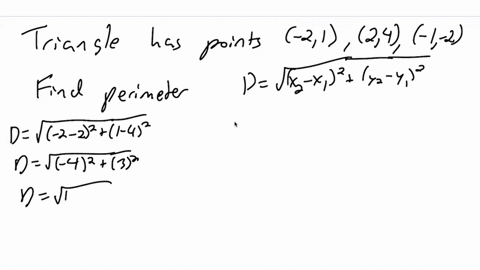 Triangle has points (-2,1), (2,4), (-1,-2)
Find perimeter D=√(x₂-x₁)²+(y₂-y₁)²
D=√(-2-2)²+(1-4)²
D=√(-4)²+(3)²
D=√1